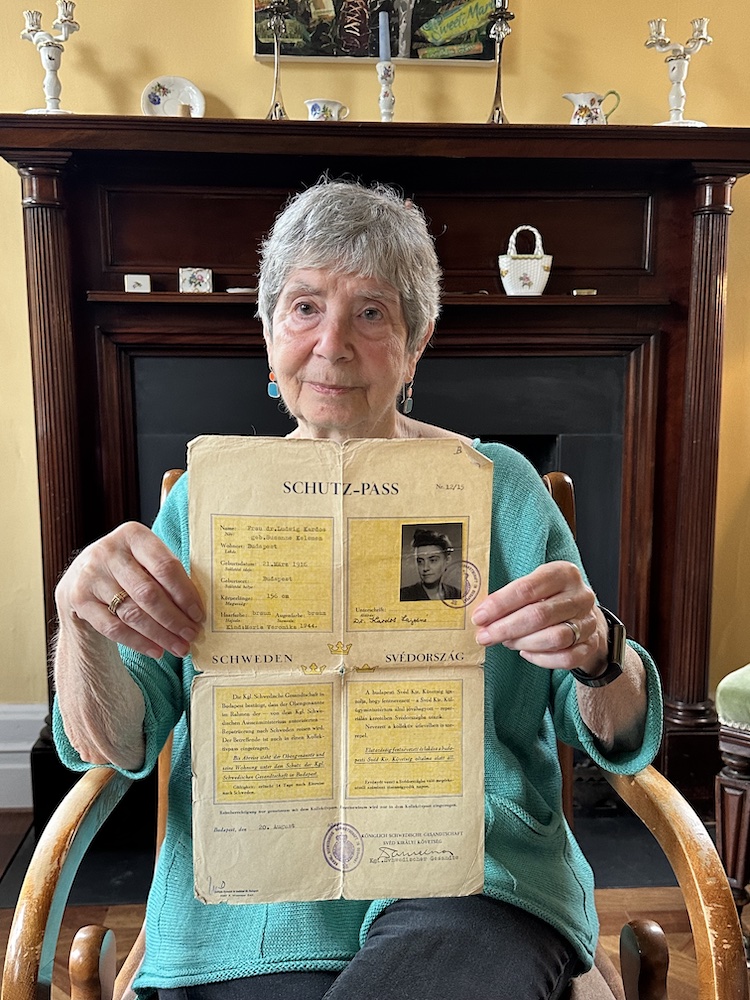 Sweet Mar
B
SCHUTZ-PASS
Nr. 12/15
Name: Frau dr.Ludwig Kardos
geb.Susanne Kelemen
Wohnort: Budapest
Geburtsdatum: 21.März 1916
Geburtsort: Budapest
Körperlänge: 156 cm
Magasság:
Haarfarbe: braun Augenfarbe: braun
Kind:Maria Veronika 1944.
Unterschrift:
Dr. Kardos Lajosné
SCHWEDEN
SVÉDORSZÁG
Die Kgl. Schwedische Gesandtschaft in
Budapest bestätigt, dass der Obengenannte
im Rahmen der — von dem Kgl. Schwe-
dischen Aussenministerium autorisierten —
Repatriierung nach Schweden reisen wird.
Der Betreffende ist auch in einen Kollek-
tivpass eingetragen.
Bis Abreise steht der Obengenannte und
seine Wohnung unter dem Schutz der Kgl.
Schwedischen Gesandtschaft in Budapest.
Gültigkeit: erlischt 14 Tage nach Einreise
nach Schweden.
A budapesti Svéd Kir. Követség iga-
zolja, hogy fentnevezett — a Svéd Kir. Kül-
ügyminisztérium által jóváhagyott — repat-
riálás keretében Svédországba utazik.
Nevezett a kollektív útlevélben is sze-
repel.
Elutazásáig fentnevezett és lakása a buda-
pesti Svéd Kir. Követség oltalma alatt áll.
Érvényét veszti a Svédországba való megérke-
zéstől számított tizennegyedik napon.
Reiseberechtigung nur gemeinsam mit dem Kollektivpass. Einreisevisum wird nur in dem Kollektivpass eingetragen.
Budapest, den 20. August
KÖNIGLICH SCHWEDISCHE GESANDTSCHAFT
SVÉD KIRÁLYI KÖVETSÉG
Kgl.Schwedischer Gesandte